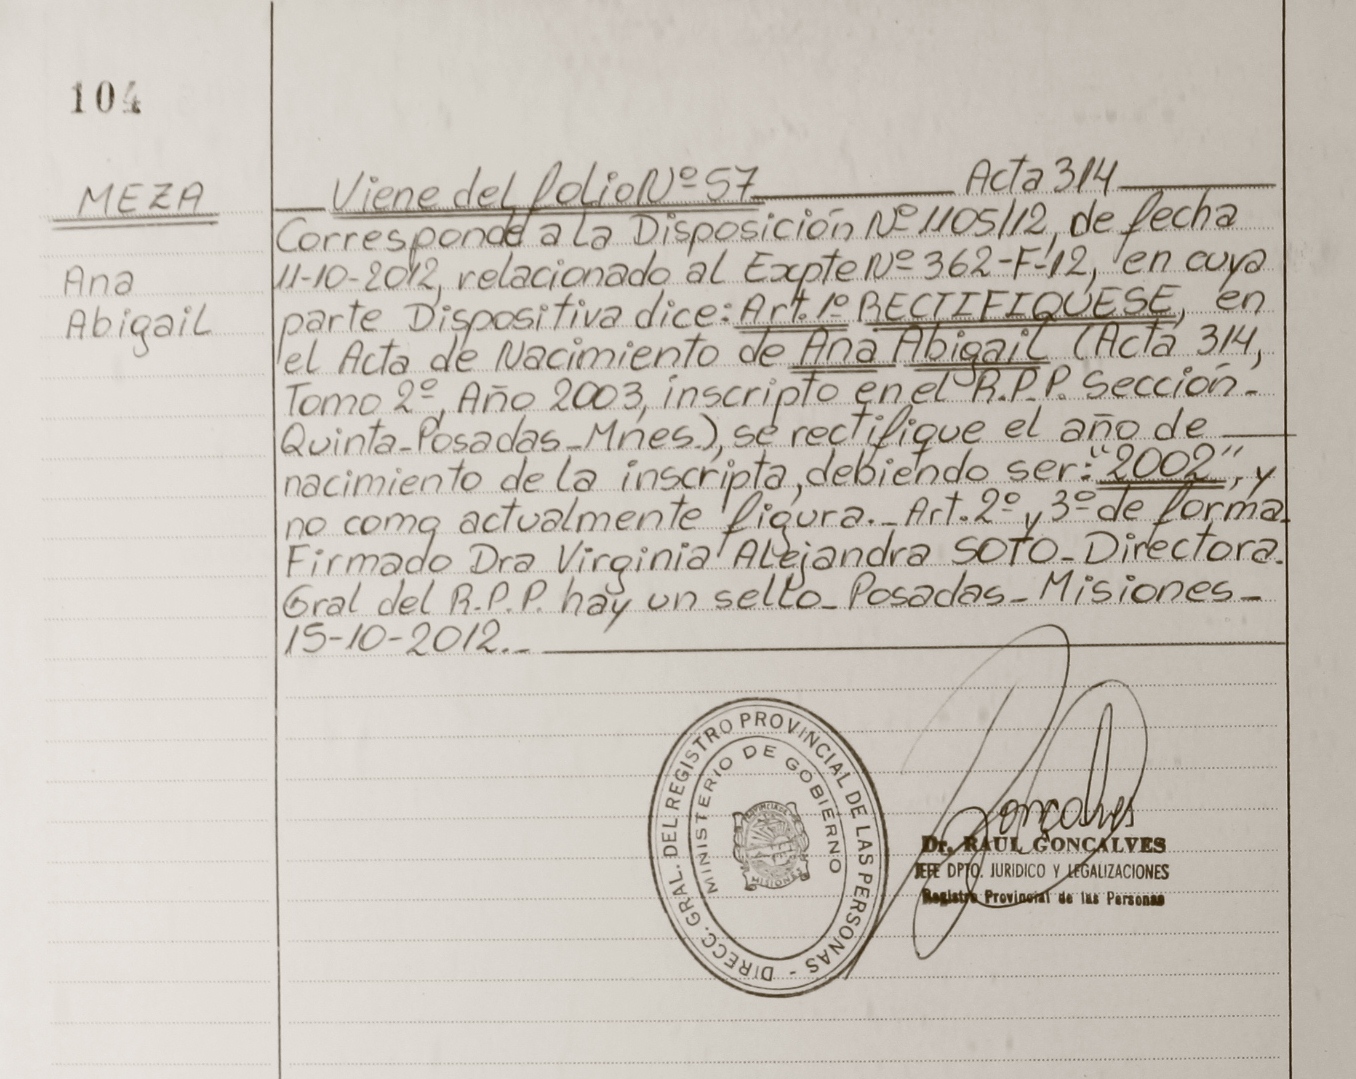 104
MEZA
Ana
Abigail
Viene del folio Nº 57 Acta 314
Corresponde a la Disposición Nº 1105/12, de fecha
11-10-2012, relacionado al Expte Nº 362-F-12, en cuya
parte Dispositiva dice: Art. 1º RECTIFIQUESE, en
el Acta de Nacimiento de Ana Abigail (Acta 314,
Tomo 2º, Año 2003, inscripto en el R.P.P. Sección-
Quinta-Posadas-Mnes.), se rectifique el año de
nacimiento de la inscripta, debiendo ser: "2002", y
no como actualmente figura._ Art. 2º y 3º de forma
Firmado Dra Virginia Alejandra SOTO-Directora.
Gral del R.P.P. hay un sello- Posadas-Misiones-
15-10-2012._
DIRECC. GRAL. DEL REGISTRO PROVINCIAL DE LAS PERSONAS -
MINISTERIO DE GOBIERNO
PROVINCIA DE
MISIONES
Goncalves
Dr. RAUL GONCALVES
JEFE DPTO. JURIDICO Y LEGALIZACIONES
Registro Provincial de las Personas